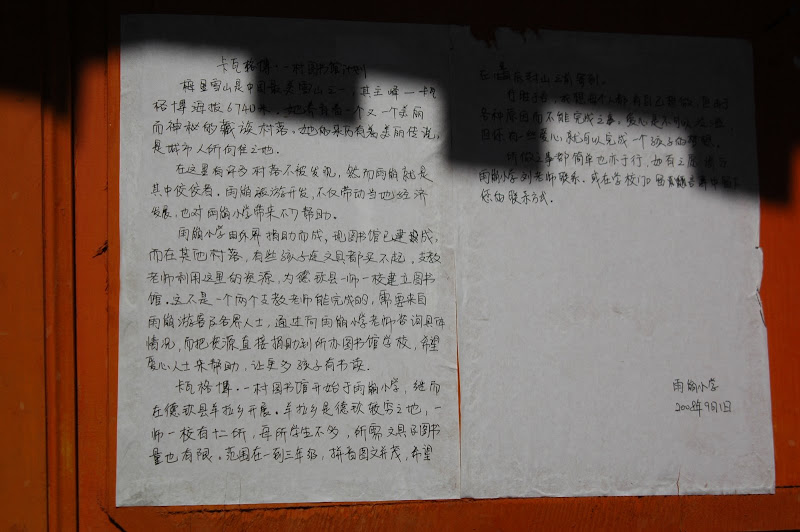 卡瓦格博·一村图书馆计划
梅里雪山是中国最美雪山之一,其主峰—卡瓦
格博海拔6740米,她养育着一个又一个美丽
而神秘的藏族村落。她的来历有着美丽传说,
是城市人所向往之地。
在这里有许多村落不被发现,然而雨崩就是
其中佼佼者。雨崩被游开发,不仅带动当地经济
发展,也对雨崩小学带来不少帮助。
雨崩小学由外界捐助而成,现图书馆已建设成,
而在其他村落,有些孩子连文具都买不起,支教
老师利用这里的资源,为德钦县一师一校建立图书
馆。这不是一个两个支教老师能完成的,需要来自
雨崩游客及各界人士,通过向雨崩小学老师咨询具体
情况,而把资源直接捐助到所办图书馆学校,希望
爱心人士来帮助,让更多孩子有书读。
卡瓦格博·一村图书馆开始于雨崩小学,继而
在德钦县羊拉乡开展。羊拉乡是德钦最穷之地,一
师一校有十二所,每所学生不多,所需文具及图书
量也有限。范围在一到三年级,拼音图文并茂,希望
在封山之前筹到。
各种原因而不能完成之事,爱心是不可以
有一些爱心就可以完成一个孩子的梦想。
所做之事都简单也亦于行,如有之愿请与
雨崩小学刘老师联系。或在学校门口留下
你的联系方式。
雨崩小学
2008年9月1日